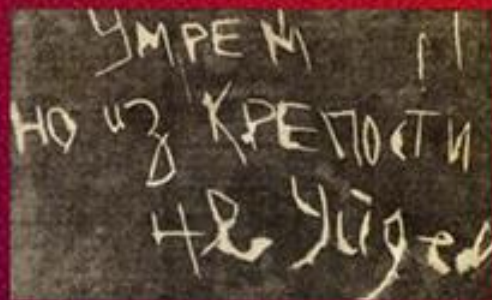 УМРЕМ
НО ИЗ КРЕПОСТИ
НЕ УЙдем